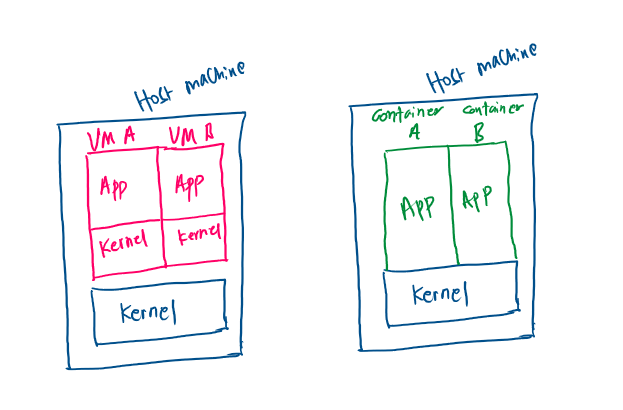 Host machine
VM A VM B
App App
Kernel Kernel
Kernel
Host machine
Container Container
A B
App App
Kernel